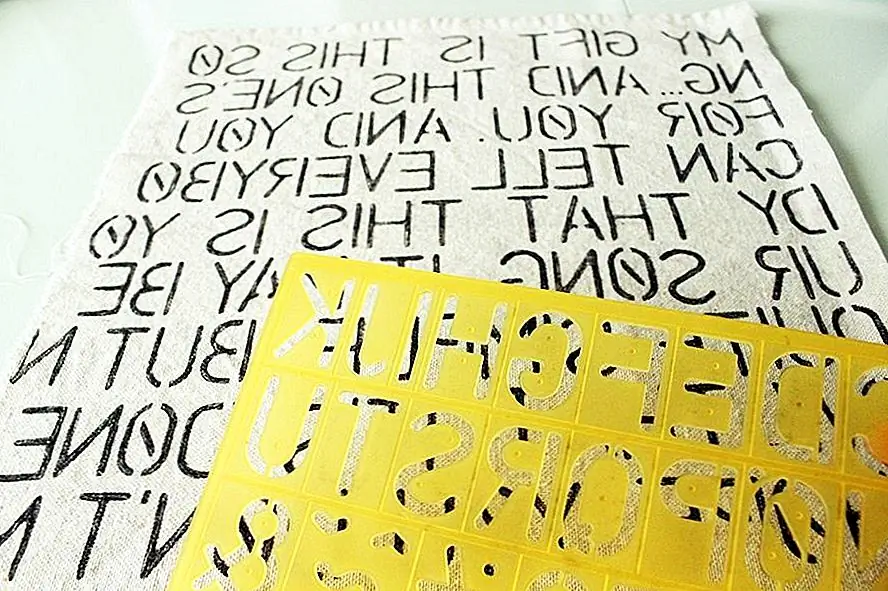 MY GIFT IS THIS SO
NG... AND THIS ONE'S
FOR YOU. AND YOU
CAN TELL EVERYBO
DY THAT THIS IS YO
UR SONG IT MAY BE
BUT N
DONE
N'T
C D E F G H I J K
O P Q R S T U
&